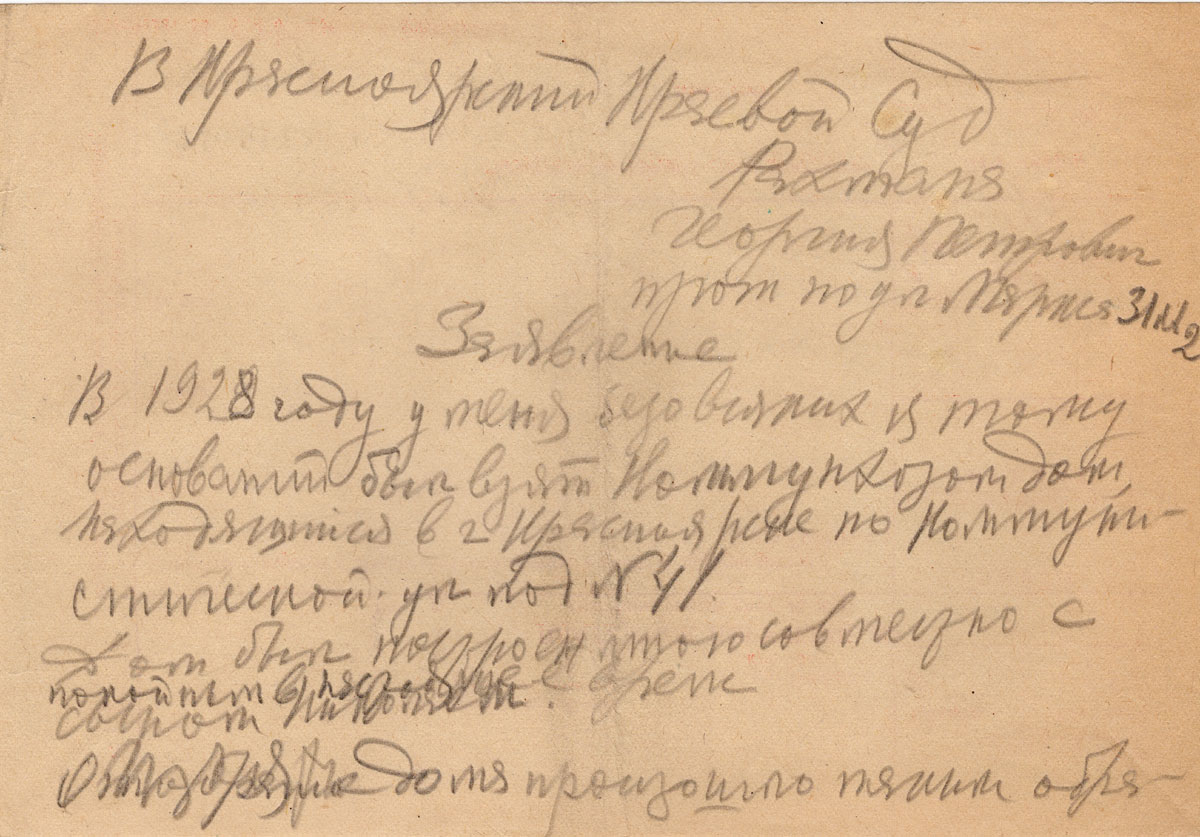 В Красноярский Краевой Суд
Рахманя
Георгия Петрович
прож по ул Маркса 31
Заявление
В 1928 году у меня безовсяких к тому
оснований был взят Коммунхозом дом,
находящийся в г Красноярске по Коммуни-
стической ул под № 41.
Дом был построен мною совместно с
покойным в настоящее время
сыном
дома произошло таким обра-